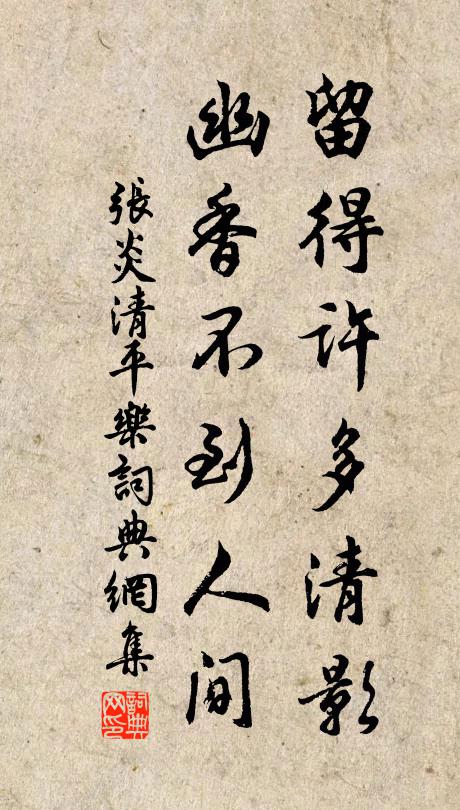 留得许多清影
幽香不到人间
張炎清平樂詞典網集
詞典网印